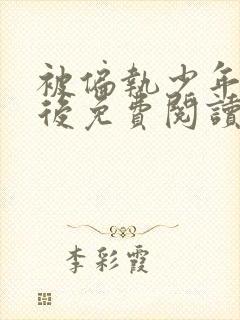 被偏執少年
後免費閱讀
李彩霞